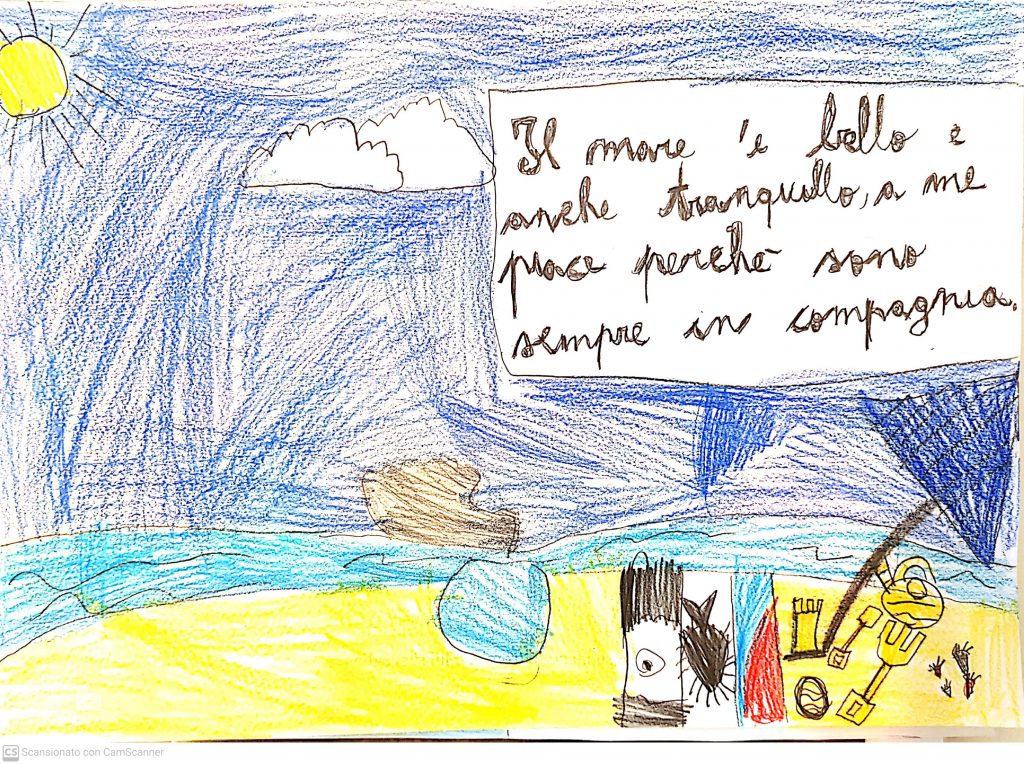 Il mare 'e bello e
anche tranquillo, a me
piace perchè sono
sempre in compagnia.
CS Scansionato con CamScanner